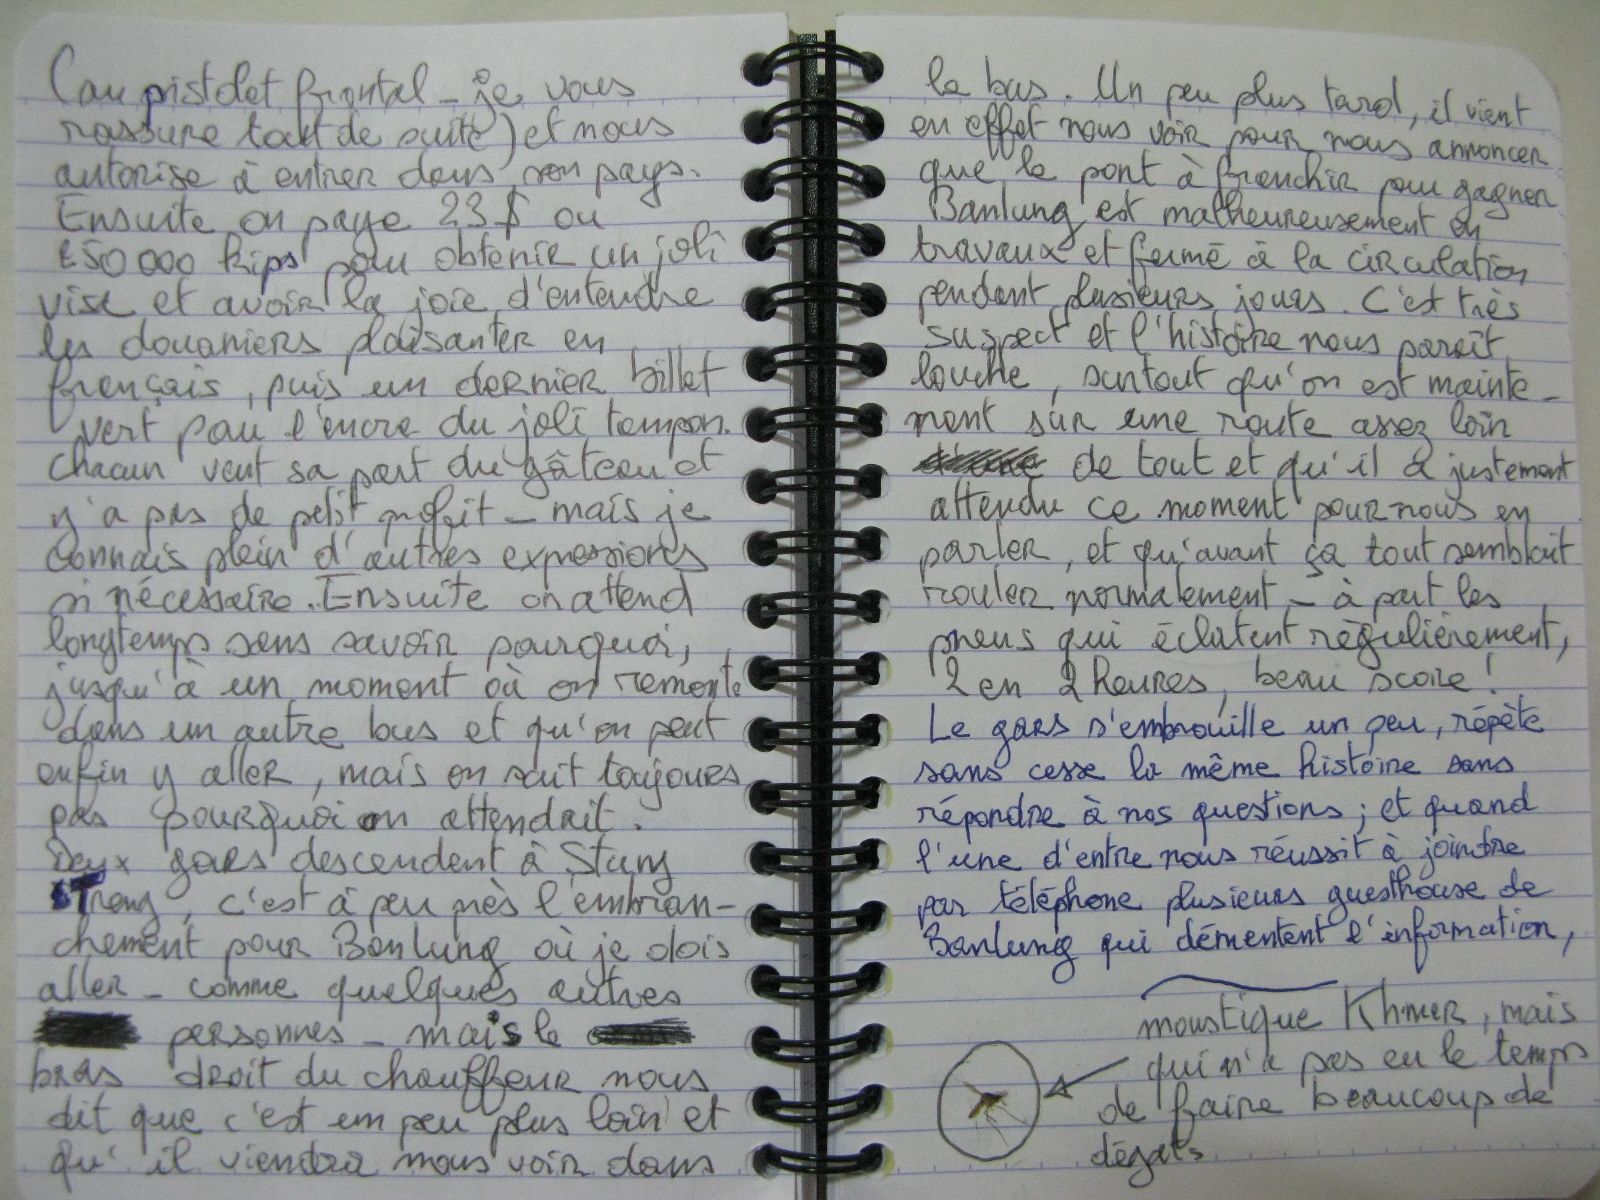 (au pistolet frontal _ je vous
rassure tout de suite) et nous
autorise à entrer dans son pays.
Ensuite on paye 23 $ ou
250 000 kips pour obtenir un joli
visa et avoir la joie d'entendre
les douaniers plaisanter en
français, puis un dernier billet
vert pour l'encre du joli tampon.
Chacun veut sa part du gâteau et
y'a pas de petit profit _ mais je
connais plein d'autres expressions
si nécessaire. Ensuite on attend
longtemps sans savoir pourquoi,
jusqu'à un moment où on remonte
dans un autre bus et qu'on peut
enfin y aller, mais on sait toujours
pas pourquoi on attendait.
Deux gars descendent à Stung
Treng, c'est à peu près l'embran-
chement pour Banlung où je dois
aller _ comme quelques autres
personnes _ mais le
bras droit du chauffeur nous
dit que c'est un peu plus loin et
qu'il viendra nous voir dans
le bus. Un peu plus tard, il vient
en effet nous voir pour nous annoncer
que le pont à franchir pour gagner
Banlung est malheureusement en
travaux et fermé à la circulation
pendant plusieurs jours. C'est très
suspect et l'histoire nous paraît
louche, surtout qu'on est mainte_
nant sur une route assez loin
de tout et qu'il a justement
attendu ce moment pour nous en
parler, et qu'avant ça tout semblait
rouler normalement _ à part les
pneus qui éclatent régulièrement,
2 en 2 heures, beau score !
Le gars s'embrouille un peu, répète
sans cesse la même histoire sans
répondre à nos questions ; et quand
l'une d'entre nous réussit à joindre
par téléphone plusieurs guesthouse de
Banlung qui démentent l'information,
moustique Khmer, mais
qui n'a pas eu le temps
de faire beaucoup de
dégats